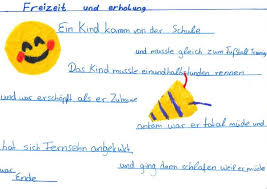 Freizeit und erholung
Ein Kind kamm von der Schule
und musste gleich zum Fußball Traning
Das Kind musste eineundhalbstunden rennen
und war erschöpft als er Zuhause
ankam war er total müde und
hat sich Fernsehn angekukt
und ging dann schlafen weil er müde
war Ende